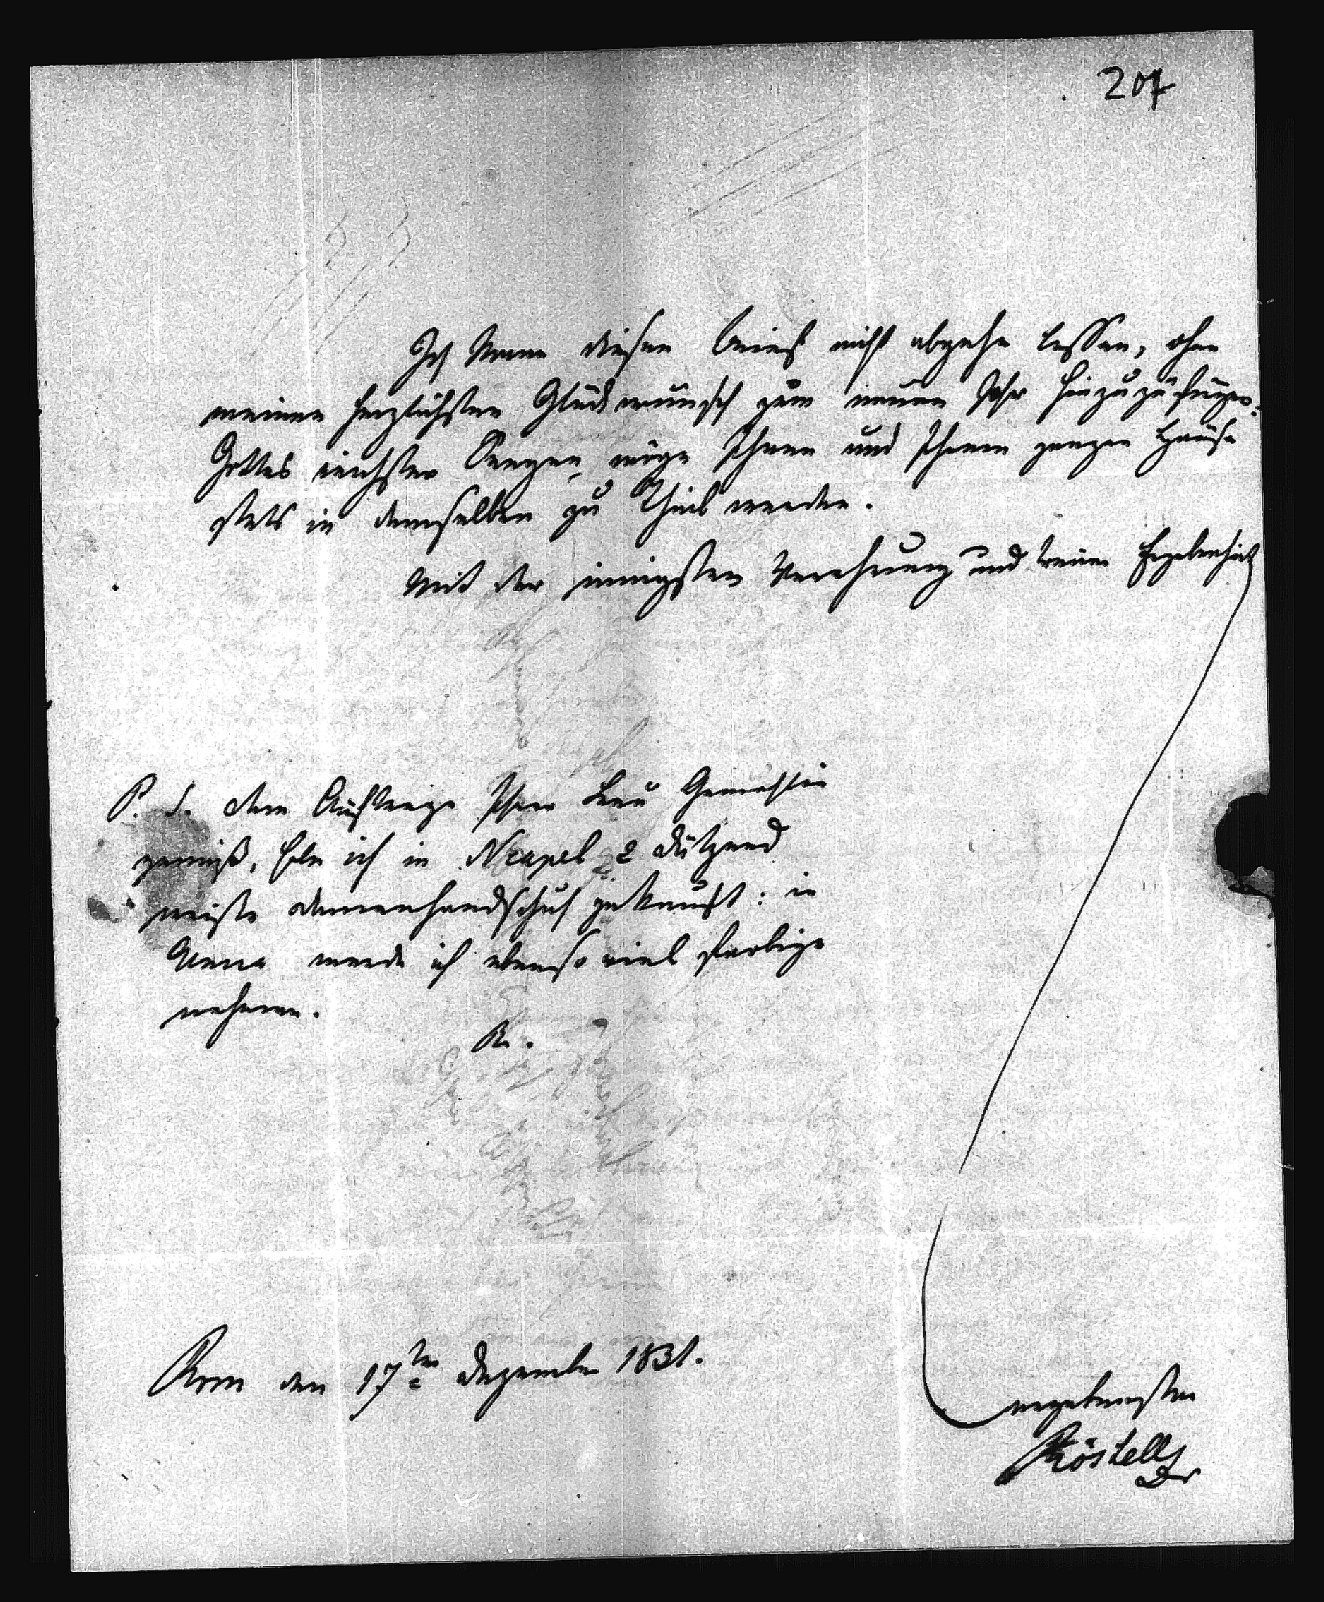 207
Ich kann diesen Brief nicht abgehn lassen, ohne
meinen herzlichsten Glückwunsch zum neuen Jahr hinzuzufügen.
Gottes reichster Seegen möge Ihnen und Ihrem ganzen Hause
stets in demselben zu Theil werden.
Mit der innigsten Verehrung und treuen Ergebenheit
P. S. dem Auftrage Ihrer Frau Gemahlin
gemäß, habe ich in Neapel 2 Dutzend
weiße Damenhandschuh gekauft: in
werde ich ebenso viel farbige
nehmen.
R.
Rom den 17ten Dezember 1831.
ergebenster
Röstell
Dr